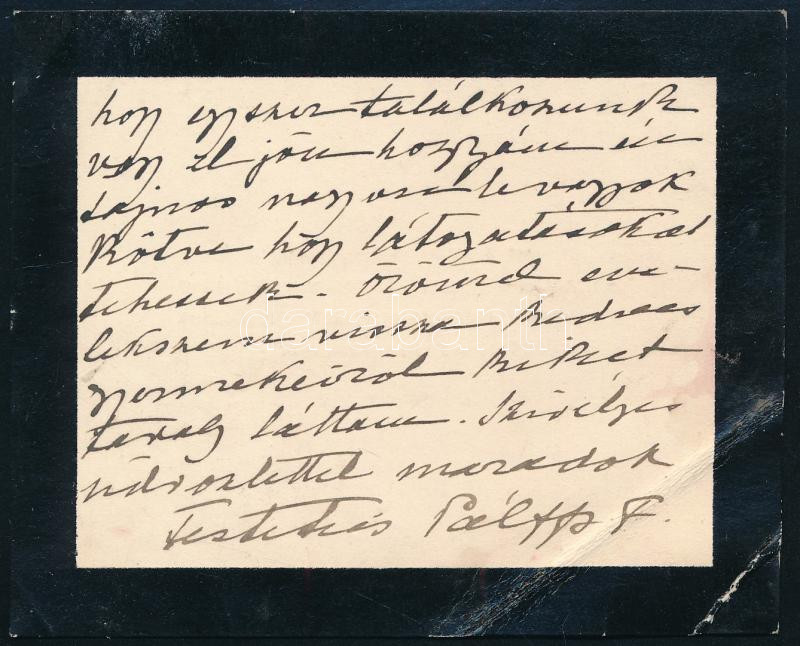 hogy egyszer találkozunk
vagy el jön hozzám én
sajnos nagyon le vagyok
kötve hogy látogatásokat
tehessek. Örömel em-
lekszem vissza kedves
gyermekeiről kiket
tavaly láttam. Szivélyes
üdvözlettel maradok
Festetics Pálffy F.
darabanth